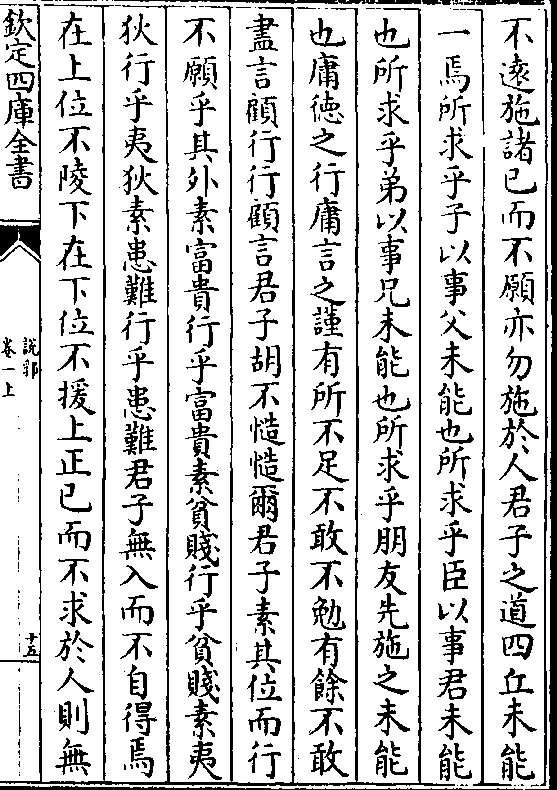 不遠施諸已而不願亦勿施於人君子之道四丘未能
一焉所求乎子以事父未能也所求乎臣以事君未能
也所求乎弟以事兄未能也所求乎朋友先施之未能
也庸徳之行庸言之謹有所不足不敢不勉有餘不敢
盡言顧行行顧言君子胡不慥慥爾君子素其位而行
不願乎其外素富貴行乎富貴素貧賤行乎貧賤素夷
狄行乎夷狄素患難行乎患難君子無入而不自得焉
在上位不陵下在下位不援上正已而不求於人則無
欽定四庫全書
說郛
卷一上
十五